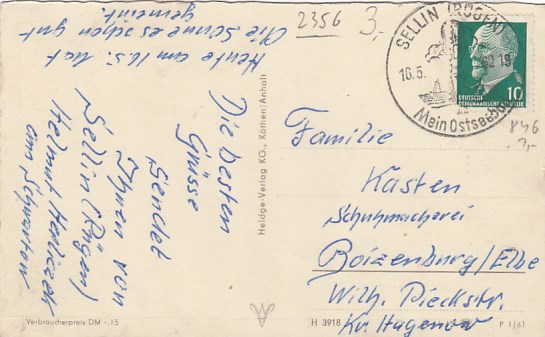 Heute am 16.5. hat
die Sonne es schon gut
gemeint.
Die besten
Grüsse
sendet
Ihnen von
Sellin (Rügen)
Helmut
2356
3,-
SELLIN (RÜGEN)
16.5. 62-19
Mein Ostseebad
DEUTSCHE
DEMOKRATISCHE REPUBLIK
10
846
3,-
Familie
Kasten
Schuhmacherei
Boizenburg/Elbe
Wilh. Pieckstr.
Kr. Hagenow
Heldge-Verlag KG., Köthen/Anhalt
Verbraucherpreis DM -.15
H 3918
P 1/61